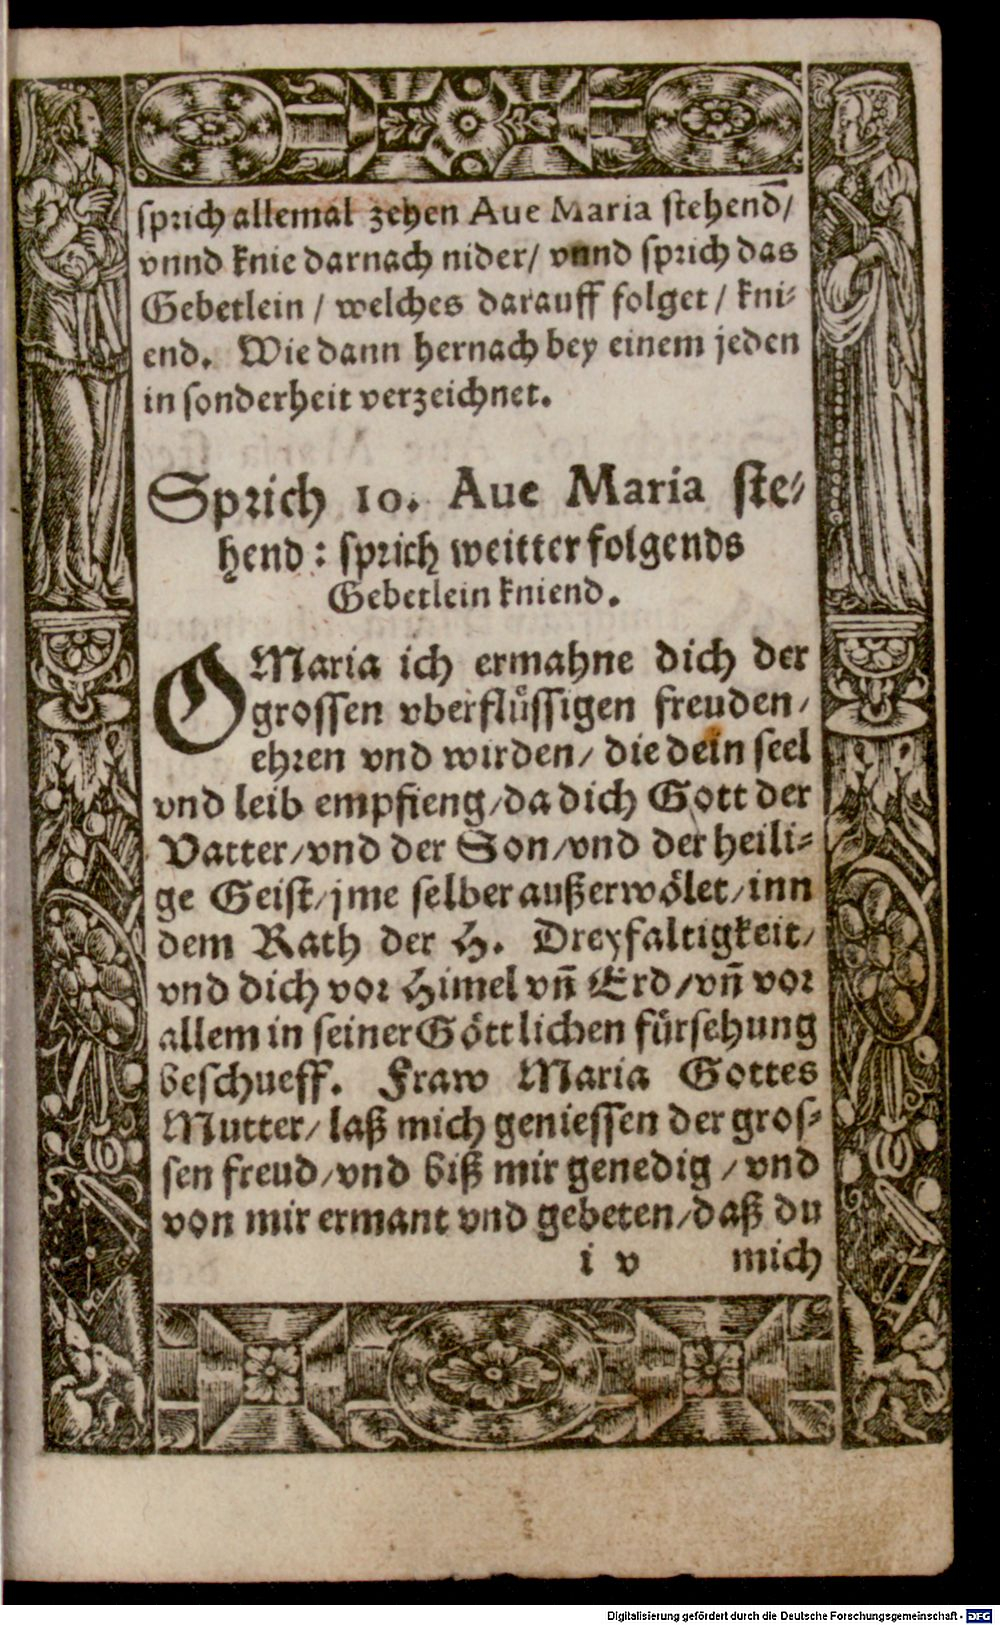 sprich allemal zehen Aue Maria stehend̄/
vnnd knie darnach nider/ vnnd sprich das
Gebetlein / welches darauff folget / kni⸗
end. Wie dann hernach bey einem jeden
in sonderheit verzeichnet.
Sprich 10. Aue Maria ste⸗
hend : sprich weitter folgends
Gebetlein kniend.
O Maria ich ermahne dich der
grossen vberflüssigen freuden/
ehren vnd wirden/ die dein seel
vnd leib empfieng/da dich Gott der
Vatter/vnd der Son/vnd der heili⸗
ge Geist/jme selber außerwölet/inn
dem Rath der H. Dreyfaltigkeit/
vnd dich vor Himel vñ Erd/vñ vor
allem in seiner Göttlichen fürsehung
beschueff. Fraw Maria Gottes
Mutter/ laß mich geniessen der gros⸗
sen freud/vnd biß mir genedig /vnd
von mir ermant vnd gebeten/daß du
i v mich
Digitalisierung gefördert durch die Deutsche Forschungsgemeinschaft - DFG